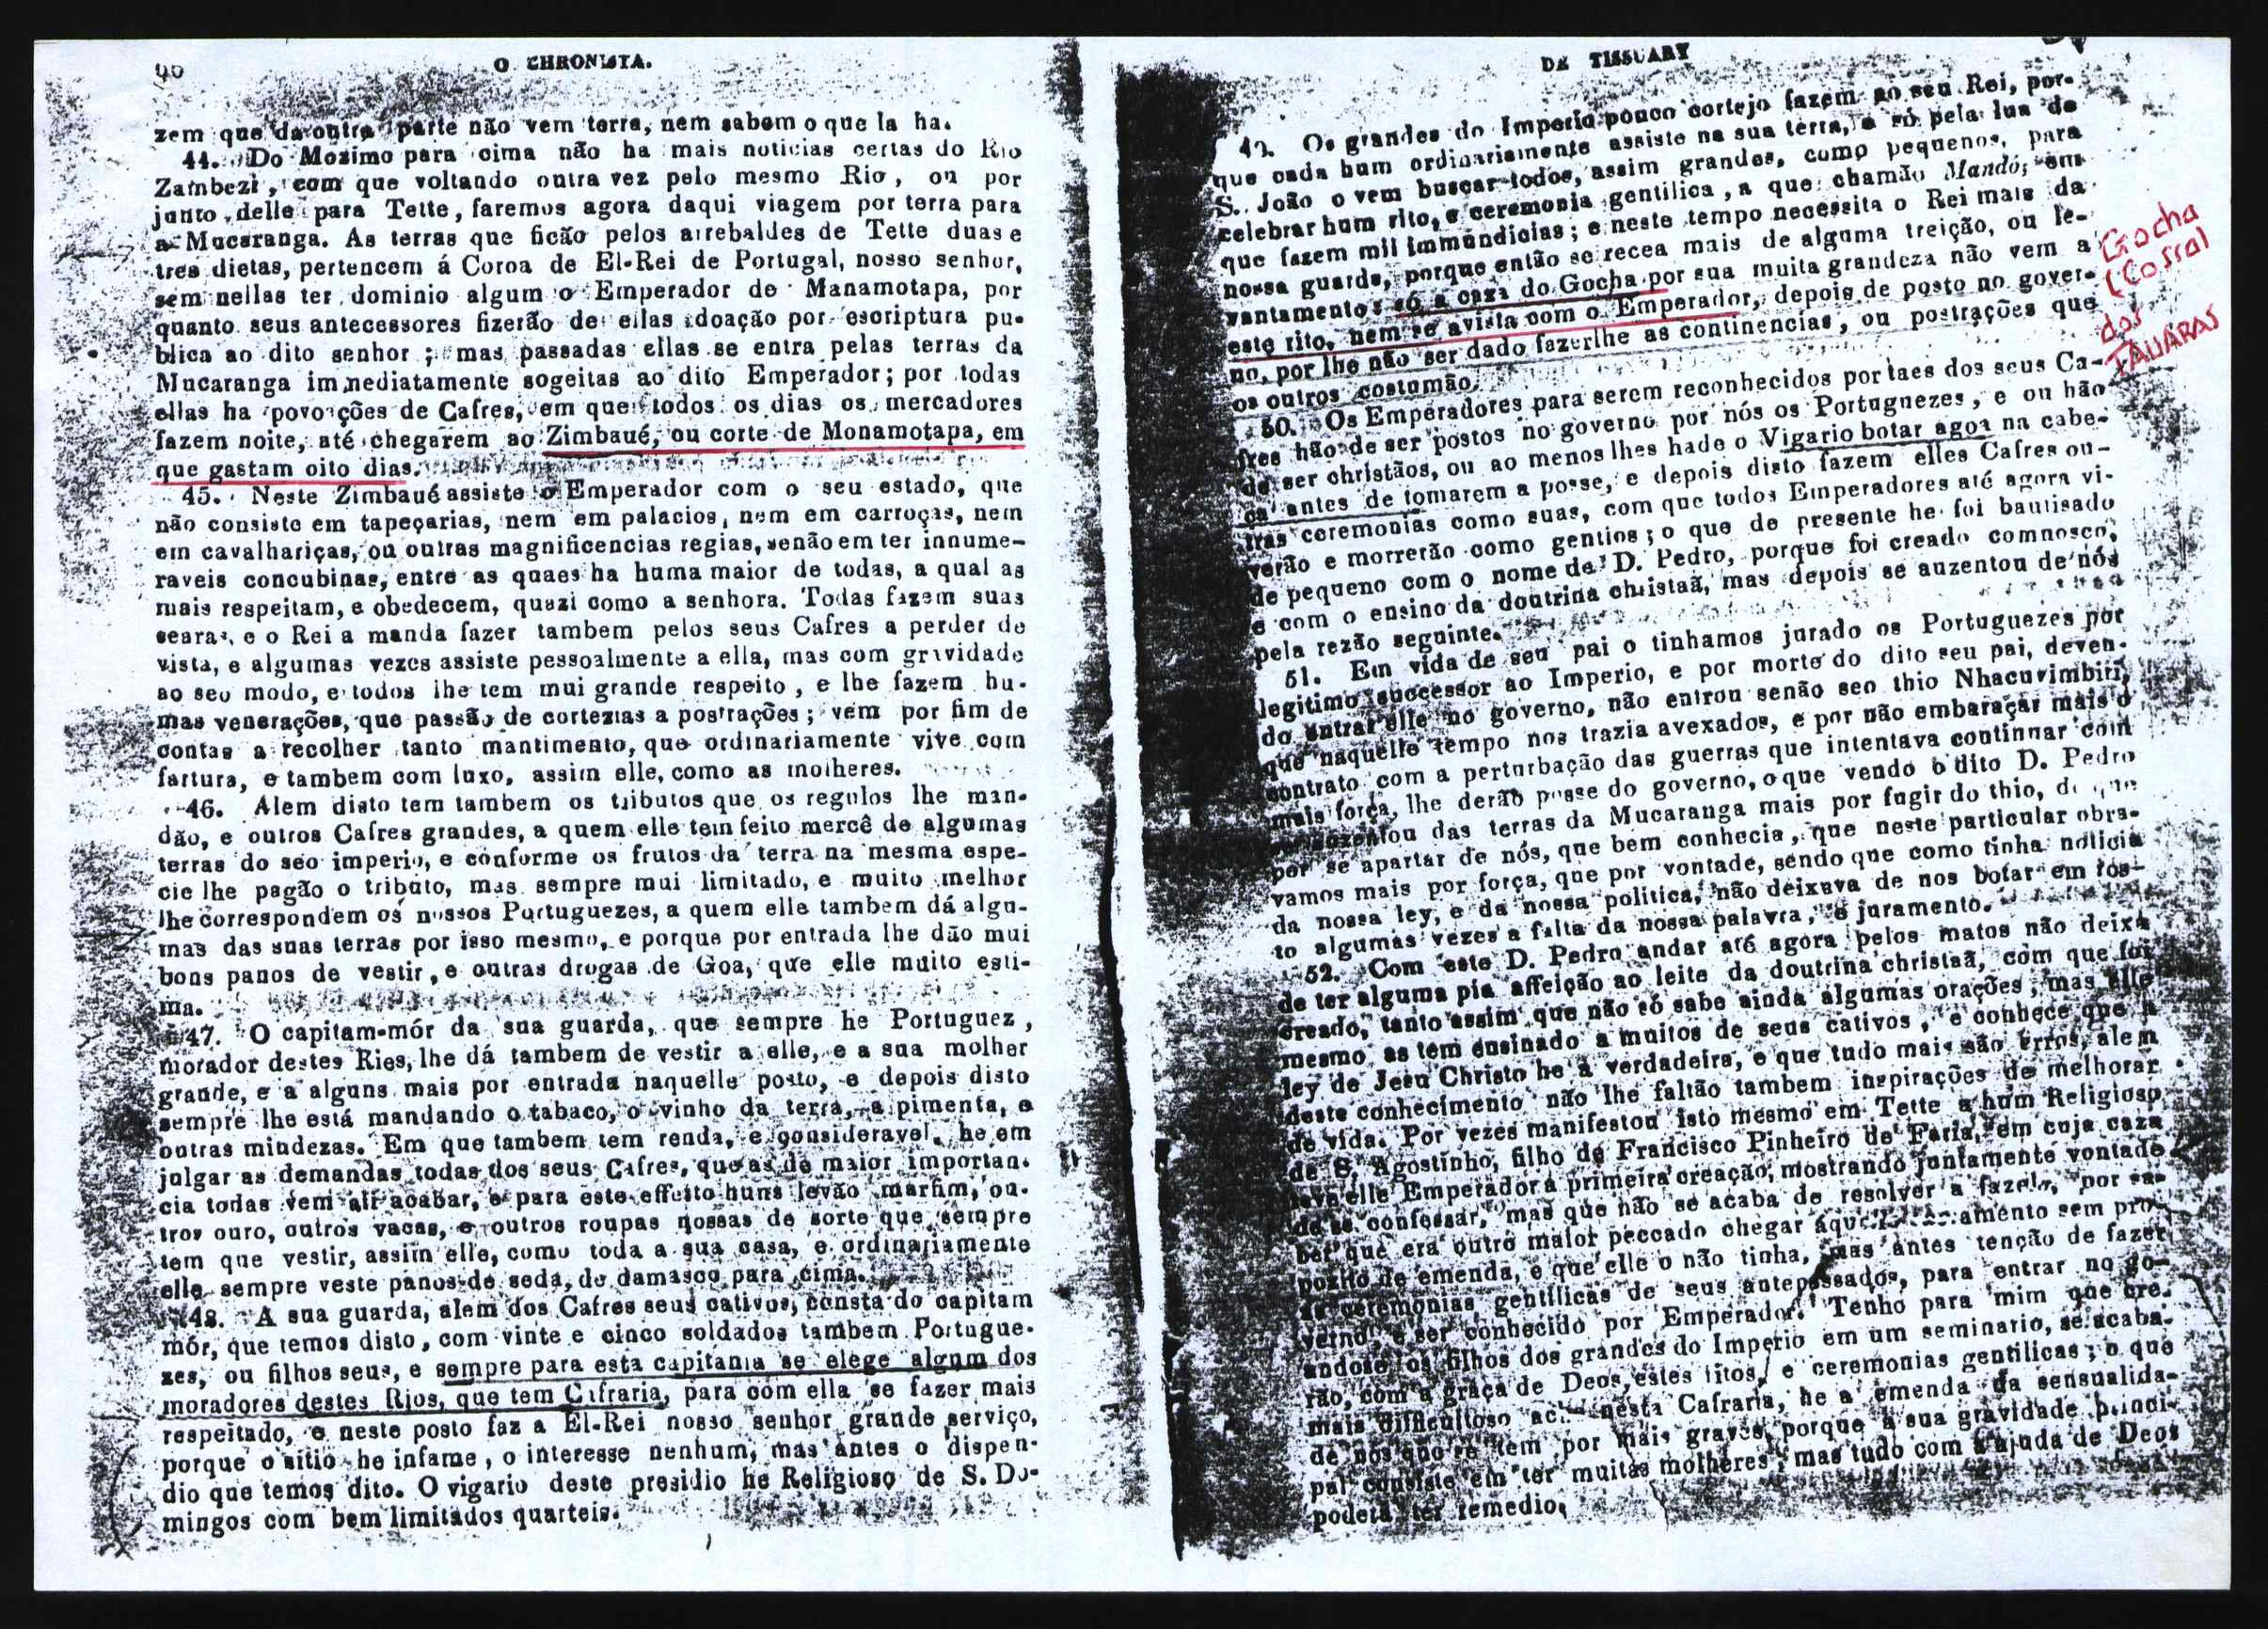 40
O CHRONISTA.
zem que da outra parte não vem terra, nem sabem o que la ha.
44. Do Mozimo para cima não ha mais noticias certas do Rio
Zambezi, com que voltando outra vez pelo mesmo Rio, ou por
junto delle para Tette, faremos agora daqui viagem por terra para
a Mucaranga. As terras que ficão pelos arrebaldes de Tette duas e
tres dietas, pertencem á Coroa de El-Rei de Portugal, nosso senhor,
sem nellas ter dominio algum o Emperador de Manamotapa, por
quanto seus antecessores fizerão de ellas doação por escriptura pu-
blica ao dito senhor; mas passadas ellas se entra pelas terras da
Mucaranga immediatamente sogeitas ao dito Emperador; por todas
ellas ha povoições de Cafres, em que todos os dias os mercadores
fazem noite, até chegarem ao Zimbaué, ou corte de Monamotapa, em
que gastam oito dias.
45. Neste Zimbaué assiste o Emperador com o seu estado, que
não consiste em tapeçarias, nem em palacios, nem em carroças, nem
em cavalhariças, ou outras magnificencias regias, senão em ter innume-
raveis concubinas, entre as quaes ha huma maior de todas, a qual as
mais respeitam, e obedecem, quazi como a senhora. Todas fazem suas
searas, e o Rei a manda fazer tambem pelos seus Cafres a perder de
vista, e algumas vezes assiste pessoalmente a ella, mas com gravidade
ao seo modo, e todos lhe tem mui grande respeito, e lhe fazem hu-
mas venerações, que passão de cortezias a postrações; vem por fim de
contas a recolher tanto mantimento, que ordinariamente vive com
fartura, e tambem com luxo, assim elle, como as molheres.
46. Alem disto tem tambem os tributos que os regulos lhe man-
dão, e outros Cafres grandes, a quem elle tem feito mercê de algumas
terras do seo imperio, e conforme os frutos da terra na mesma espe-
cie lhe pagão o tributo, mas sempre mui limitado, e muito melhor
lhe correspondem os nossos Portuguezes, a quem elle tambem dá algu-
mas das suas terras por isso mesmo, e porque por entrada lhe dão mui
bons panos de vestir, e outras drogas de Goa, que elle muito esti-
ma.
47. O capitam-mór da sua guarda, que sempre he Portuguez,
morador destes Ries, lhe dá tambem de vestir a elle, e a sua molher
grande, e a alguns mais por entrada naquelle posto, e depois disto
sempre lhe está mandando o tabaco, o vinho da terra, a pimenta, e
outras miudezas. Em que tambem tem renda, e consideravel, he em
julgar as demandas todas dos seus Cafres, que as de maior importan-
cia todas vem alli acabar, e para este effeito huns levão marfim, ou-
tros ouro, outros vacas, e outros roupas nossas de sorte que sempre
tem que vestir, assim elle, como toda a sua casa, e ordinariamente
elle sempre veste panos de seda, de damasco para cima.
48. A sua guarda, alem dos Cafres seus cativos, consta do capitam
mór, que temos disto, com vinte e cinco soldados tambem Portugue-
zes, ou filhos seus, e sempre para esta capitania se elege algum dos
moradores destes Rios, que tem Cafraria, para com ella se fazer mais
respeitado, e neste posto faz a El-Rei nosso senhor grande serviço,
porque o sitio he infame, o interesse nenhum, mas antes o dispen-
dio que temos dito. O vigario deste presidio he Religioso de S. Do-
mingos com bem limitados quarteis.
DE TISSUARY
49. Os grandes do Imperio pouco cortejo fazem ao seu Rei, por-
que cada hum ordinariamente assiste na sua terra, e só pela lua de
S. João o vem buscar todos, assim grandes, como pequenos, para
celebrar hum rito, e ceremonia gentilica, a que chamão Mandó, em
que fazem mil immundicias; e neste tempo necessita o Rei mais da
nossa guarda, porque então se recea mais de alguma treição, ou le-
vantamento: só a caza do Gocha por sua muita grandeza não vem a
este rito, nem se avista com o Emperador, depois de posto no gover-
no, por lhe não ser dado fazerlhe as continencias, ou postrações que
os outros costumão.
Gocha
(Cossal
dos
TAUARAS
50. Os Emperadores para serem reconhecidos por taes dos seus Ca-
fres hão de ser postos no governo por nós os Portuguezes, e ou hão
de ser christãos, ou ao menos lhes hade o Vigario botar agoa na cabe-
ça antes de tomarem a posse, e depois disto fazem elles Cafres ou-
tras ceremonias como suas, com que todos Emperadores até agora vi-
verão e morrerão como gentios; o que de presente he foi bautisado
de pequeno com o nome de D. Pedro, porque foi creado comnosco,
e com o ensino da doutrina christaã, mas depois se auzentou de nós
pela rezão seguinte.
51. Em vida de seu pai o tinhamos jurado os Portuguezes por
legitimo successor ao Imperio, e por morte do dito seu pai, deven-
do entrar elle no governo, não entrou senão seo thio Nhacuvimbiri,
que naquelle tempo nos trazia avexados, e por não embaraçar mais o
contrato com a perturbação das guerras que intentava continuar com
mais força, lhe derão posse do governo, o que vendo o dito D. Pedro
se auzentou das terras da Mucaranga mais por fugir do thio, do que
por se apartar de nós, que bem conhecia, que neste particular obra-
vamos mais por força, que por vontade, sendo que como tinha noticia
da nossa ley, e da nossa politica, não deixava de nos botar em ros-
to algumas vezes a falta da nossa palavra, e juramento.
52. Com este D. Pedro andar até agora pelos matos não deixa
de ter alguma pia affeição ao leite da doutrina christaã, com que foi
creado, tanto assim que não só sabe ainda algumas orações, mas elle
mesmo as tem ensinado a muitos de seus cativos, e conhece que a
ley de Jesu Christo he a verdadeira, e que tudo mais são erros, alem
deste conhecimento não lhe faltão tambem inspirações de melhorar
de vida. Por vezes manifestou isto mesmo em Tette a hum Religioso
de S. Agostinho, filho de Francisco Pinheiro de Faria, em cuja caza
teve elle Emperador a primeira creação, mostrando juntamente vontade
de se confessar, mas que não se acaba de resolver a fazelo, por sa-
ber que era outro maior peccado chegar áquelle sacramento sem pro-
pozito de emenda, e que elle o não tinha, mas antes tenção de fazer
as ceremonias gentilicas de seus antepassados, para entrar no go-
verno, e ser conhecido por Emperador. Tenho para mim que cre-
andose os filhos dos grandes do Imperio em um seminario, se acaba-
rão, com a graça de Deos, estes ritos, e ceremonias gentilicas; o que
mais difficultoso acho nesta Cafraria, he a emenda da sensualida-
de nos que se tem por mais graves, porque a sua gravidade princi-
pal consiste em ter muitas molheres; mas tudo com a ajuda de Deos
poderá ter remedio.